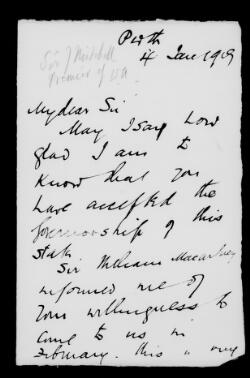 Perth
4 Jan 1909
Sir J Mitchell
Premier of WA
My dear Sir
May I say how
glad I am to
know that you
have accepted the
governorship of this
State.
Sir William Macartney
informed me of
your willingness to
come to us in
February. this is very